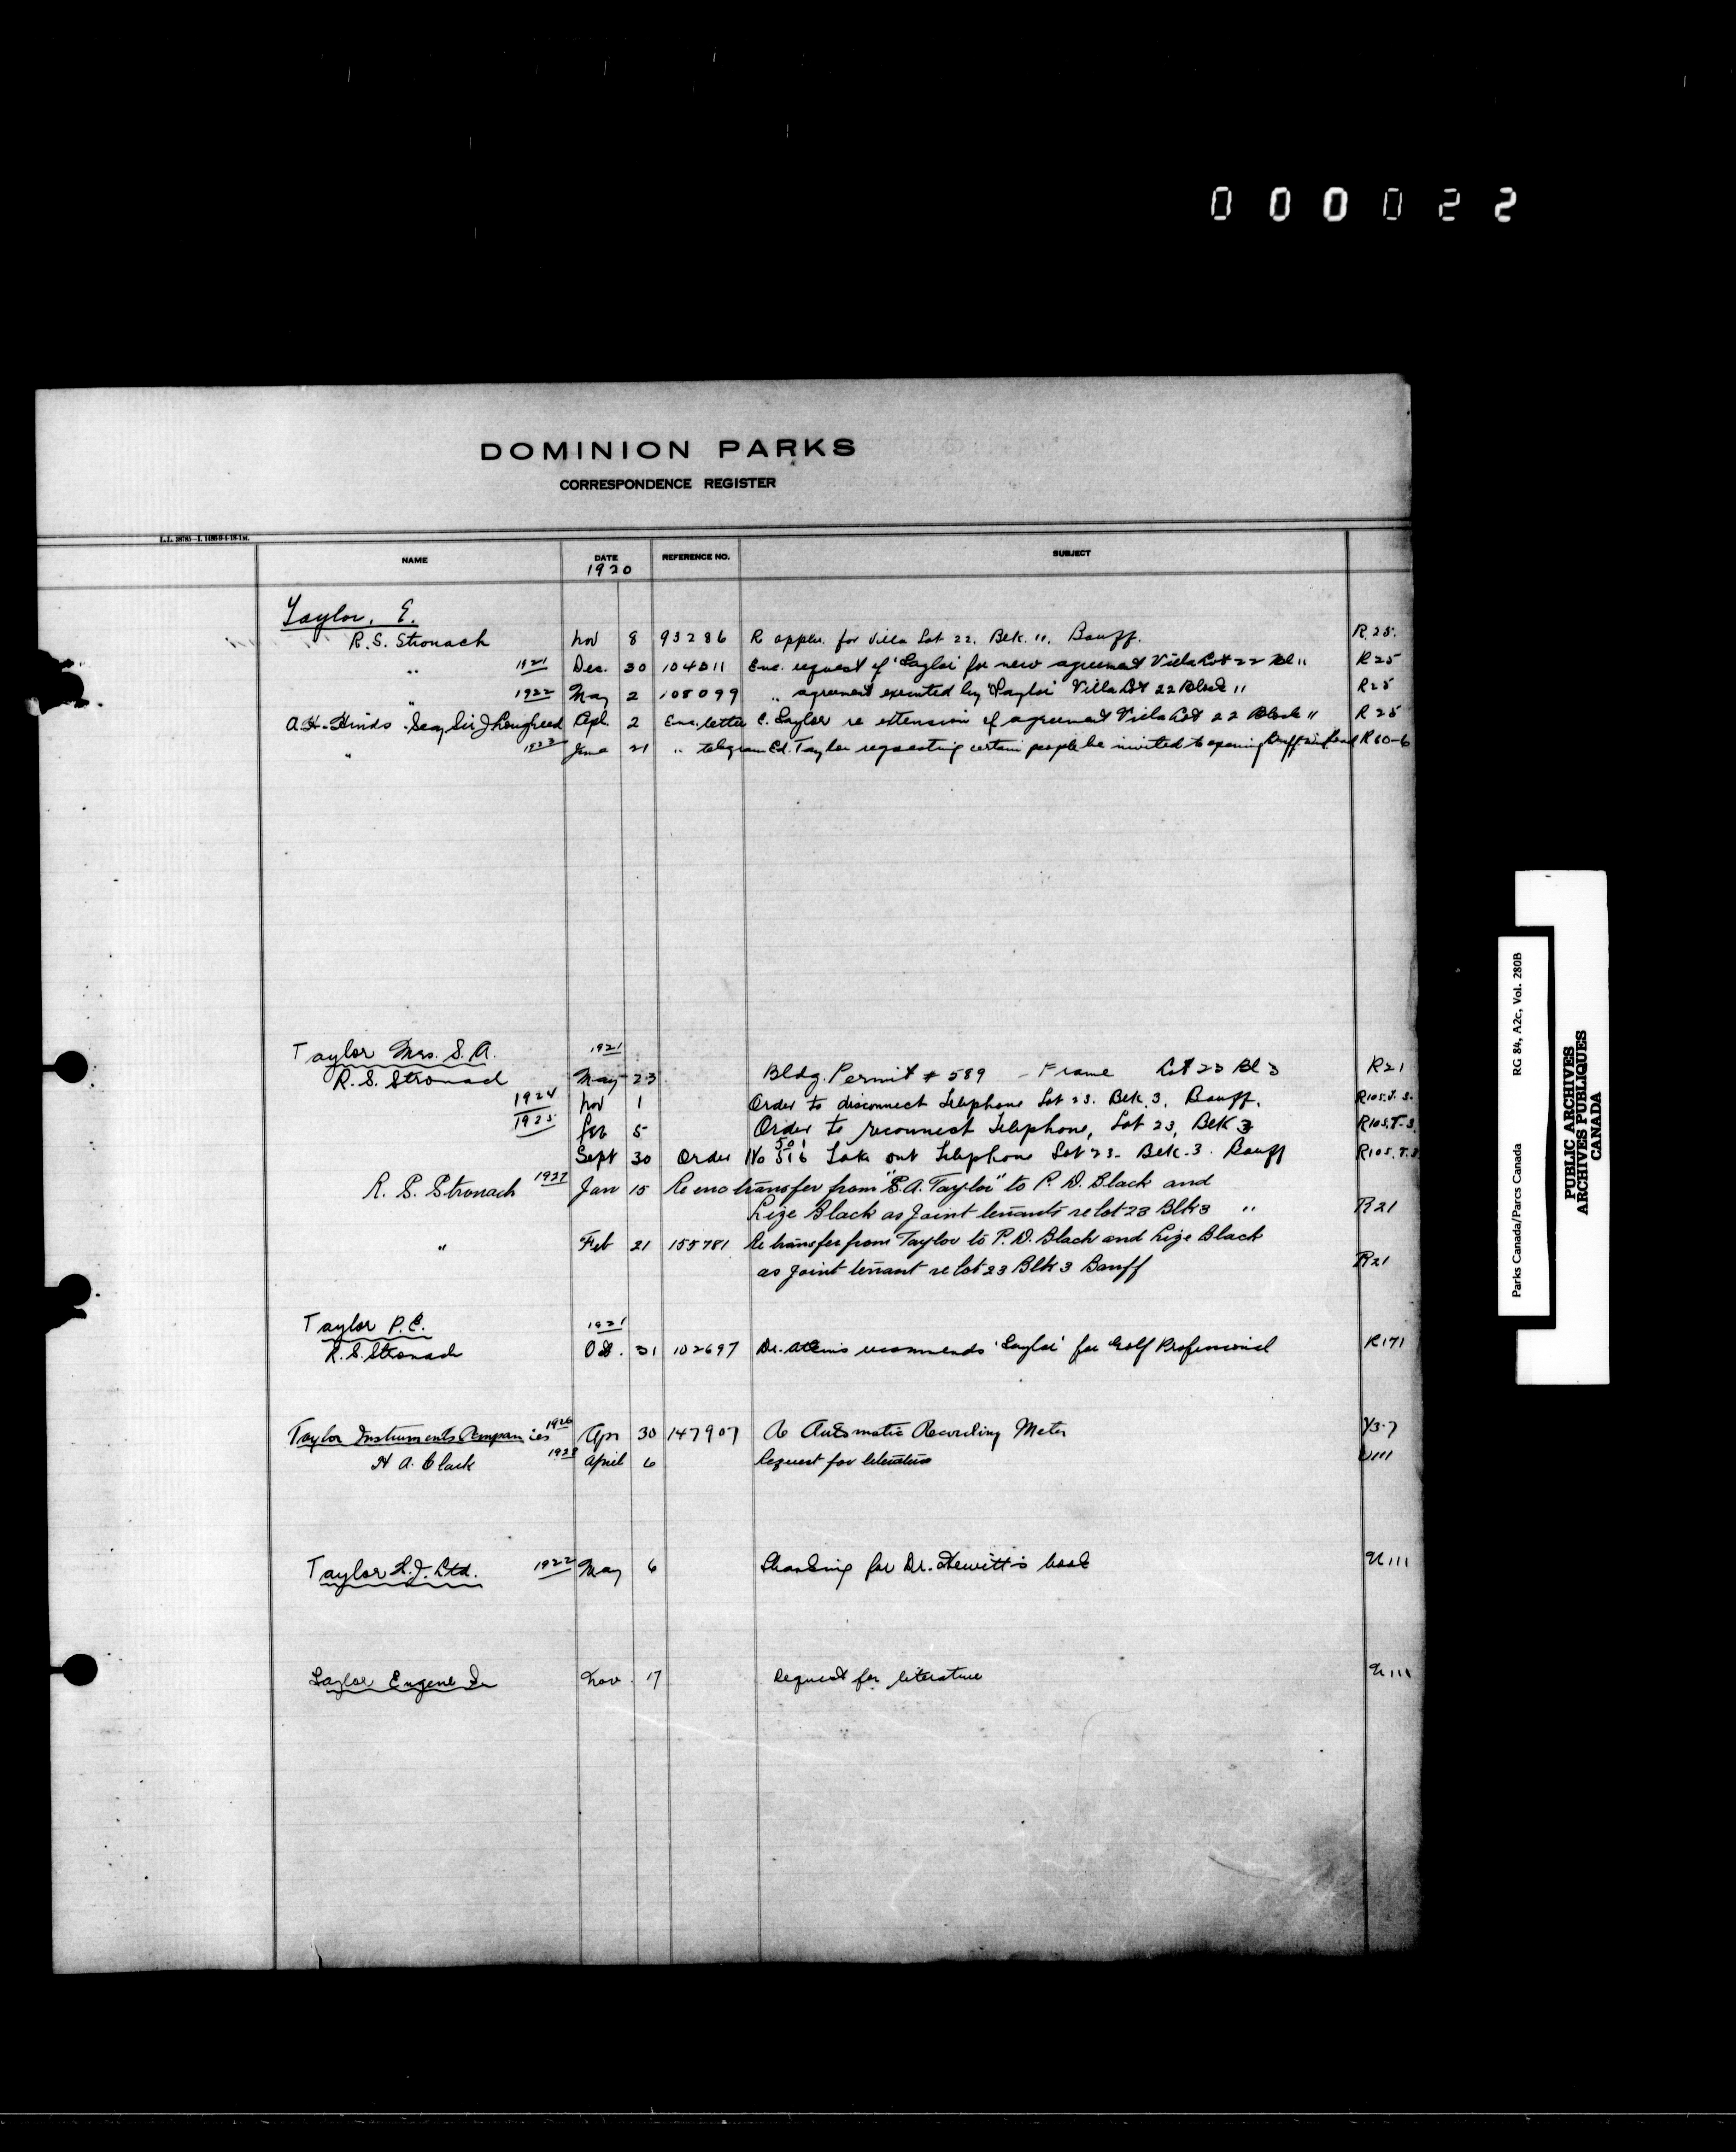 000022
DOMINION PARKS
CORRESPONDENCE REGISTER
NAME DATE REFERENCE NO. SUBJECT
1920
Taylor, E.
R.S. Stronach Nov 8 93286 R appln. for Villa Lot 22. Blk. 11. Banff. R.25.
" 1921 Dec. 30 104311 Enc. request of 'Taylor' for new agreement Villa Lot 22 Bl 11 R25
" 1922 May 2 108099 " agreement executed by 'Taylor' Villa Lot 22 Block 11 R25
A.H. Hinds Secy Sir J Lougheed Apl. 2 Enc. letter E. Taylor re extension of agreement Villa Lot 22 Block 11 R 25
" 1923 June 21 " telegram Ed. Taylor requesting certain people be invited to opening Banff-Windermere Road R60-6
Taylor Mrs. S.A. 1921
R.S. Stronach May 23 Bldg. Permit # 589 - Frame Lot 23 Bl 3 R21
1924 Nov 1 Order to disconnect Telephone Lot 23. Blk. 3. Banff. R105.T.3.
1925 Feb 5 Order to reconnect Telephone, Lot 23, Blk 3 R105.T-3.
501
Sept 30 Order No 516 Take out Telephone Lot 23. Blk. 3. Banff R105.T.3
R. S. Stronach 1927 Jan 15 Re enc transfer from "S.A. Taylor" to P. D. Black and
Lize Black as Joint tenants re lot 23 Blk 3 " R21
" Feb 21 155781 Re transfer from Taylor to P.D. Black and Lize Black
as Joint tenant re lot 23 Blk 3 Banff R21
Taylor P.E. 1921
R.S. Stronach Oct. 31 102697 Dr. Atkins recommends 'Taylor' for Golf Professional R171
Taylor Instruments Companies 1926 Apr 30 147907 Re Automatic Recording Meter Y3.7
H A. Clark 1928 April 6 Request for literature U111
Taylor L.J. Ltd. 1922 May 6 Thanking for Dr. Hewitt's book U111
Taylor Eugene Nov. 17 Request for literature U111
Parks Canada/Parcs Canada RG 84, A2c, Vol. 280B
PUBLIC ARCHIVES
ARCHIVES PUBLIQUES
CANADA